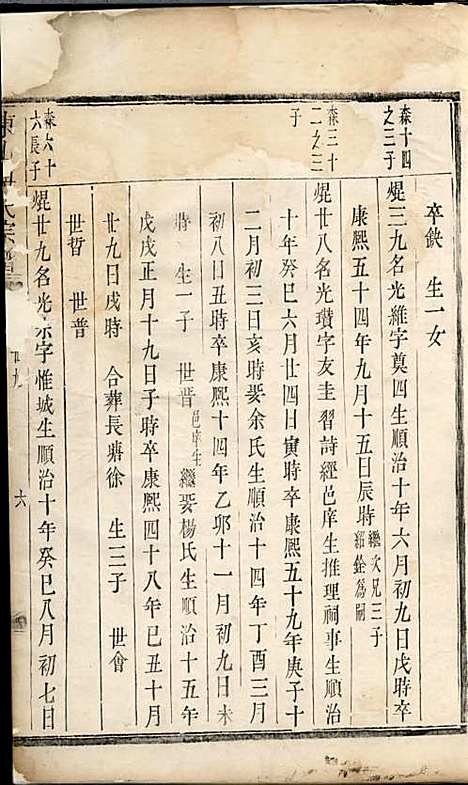 卒缺　生一女
森十四之三子
焜三九名光維字奠四生順治十年六月初九日戌時卒
康熙五十四年九月十五日辰時 繼次兄三子紹銓爲嗣
森三十二之三子
焜廿八名光瓚字友圭習詩經邑庠生推理祠事生順治
十年癸巳六月廿四日寅時卒康熙五十九年庚子十
二月初三日亥時娶余氏生順治十四年丁酉三月
初八日丑時卒康熙十四年乙卯十一月初九日未
時　生一子　世晋 邑庠生 繼娶楊氏生順治十五年
戊戌正月十九日子時卒康熙四十八年己丑十月
廿九日戌時　合葬長塘徐　生三子　世會
世晢　世普
森六十六長子
焜廿九名光宗字惟城生順治十年癸巳八月初七日
氏宗譜
六